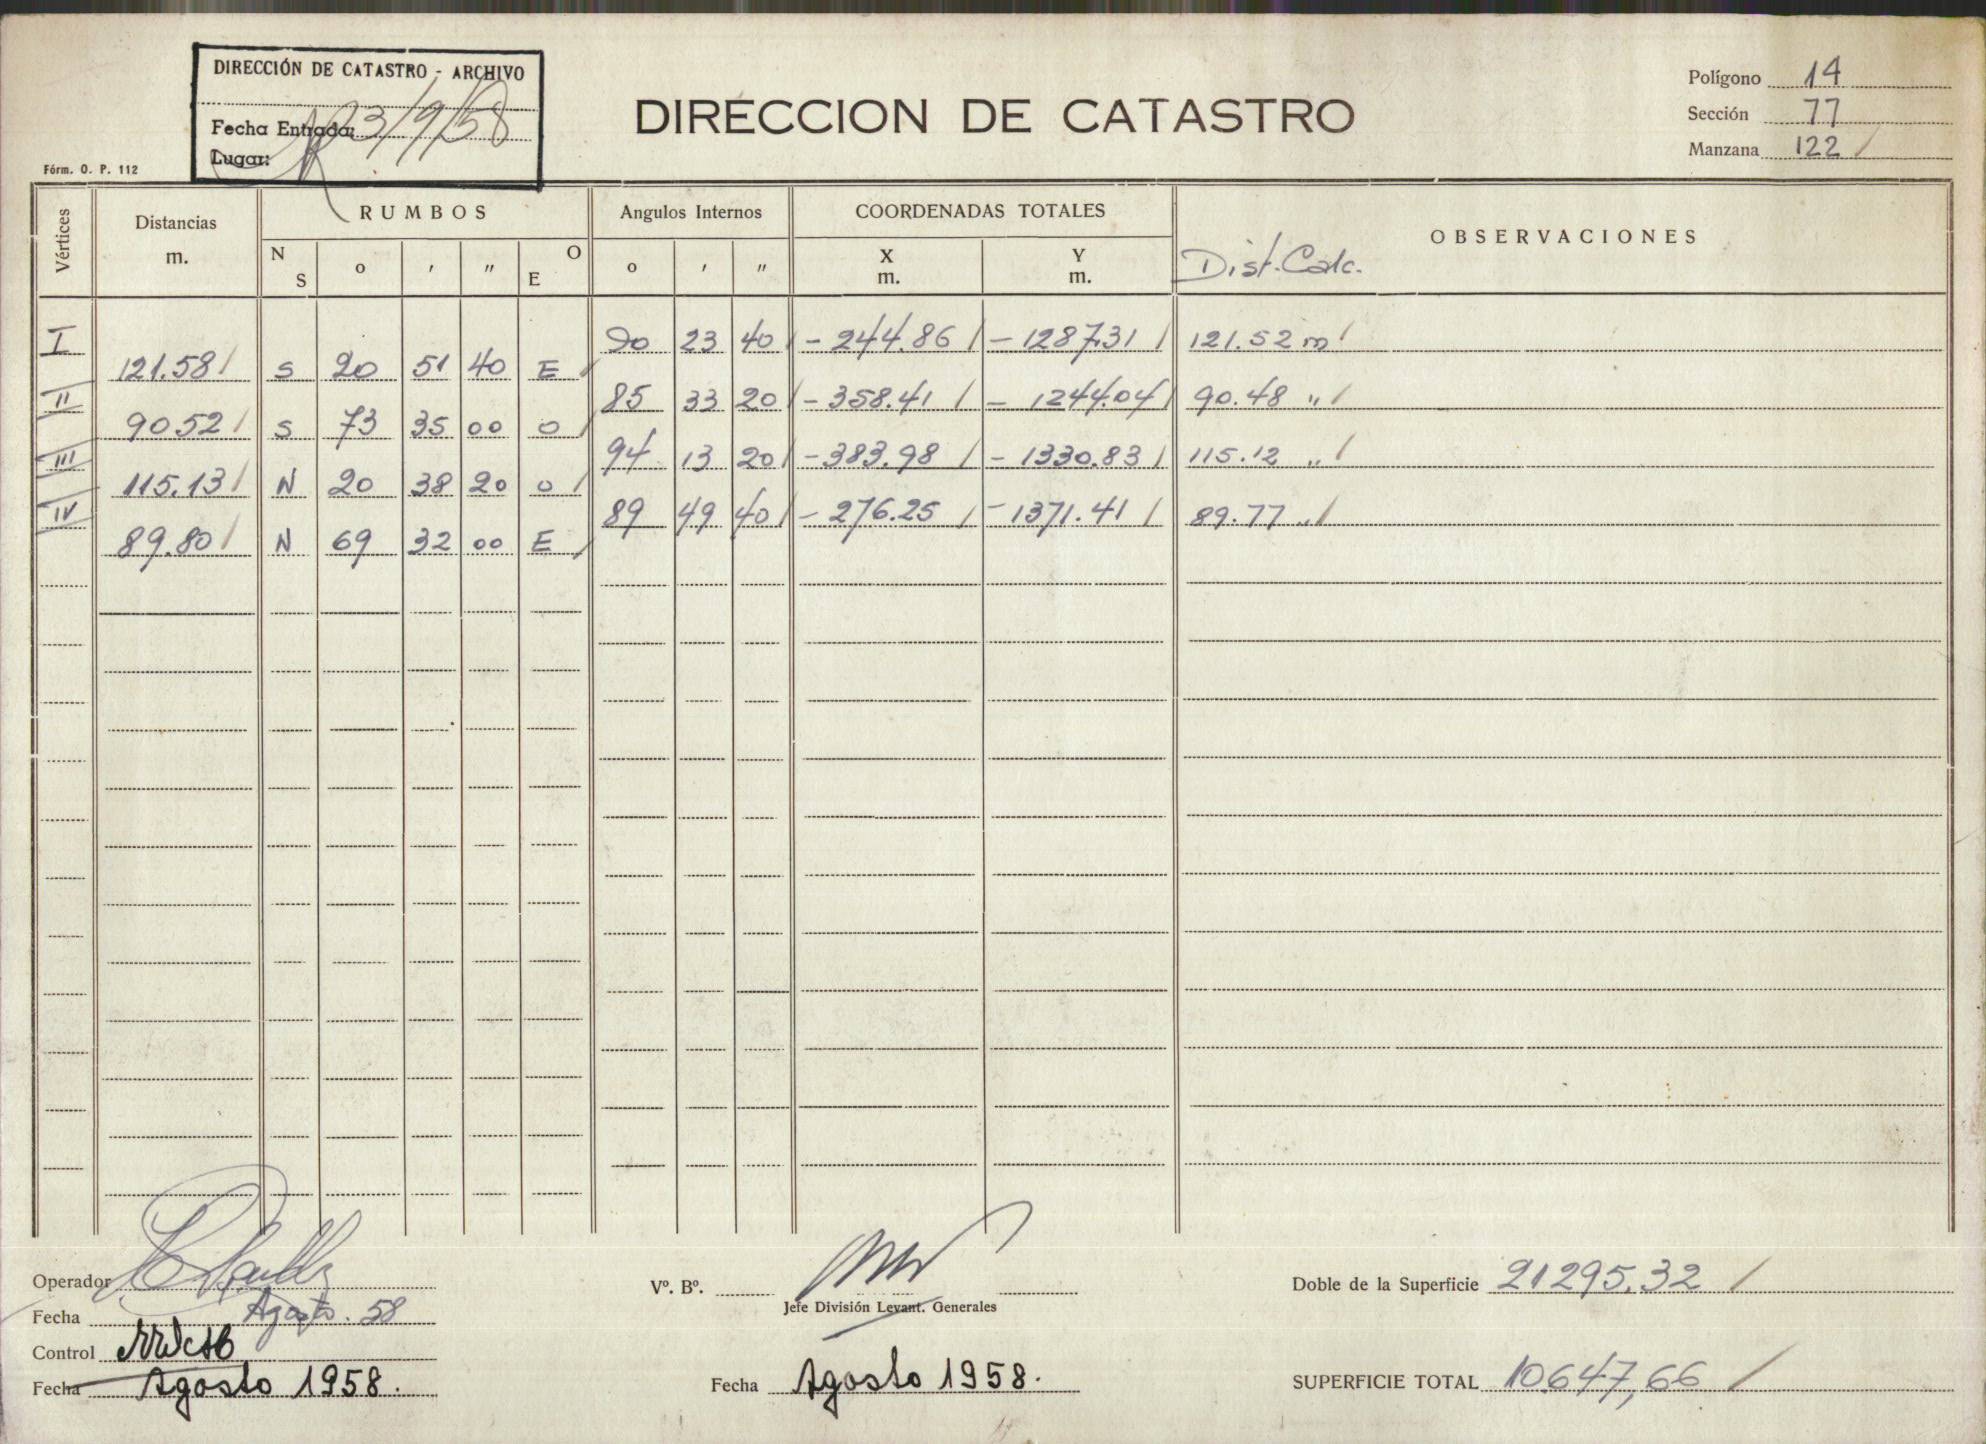 DIRECCIÓN DE CATASTRO - ARCHIVO
Fecha Entrada: 23/9/58
Lugar:
Fórm. O. P. 112
DIRECCION DE CATASTRO
Polígono 14
Sección 77
Manzana 122 /
Vértices Distancias m. RUMBOS Angulos Internos COORDENADAS TOTALES OBSERVACIONES
N S o ' " E O o ' " X m. Y m. Dist. Calc.
I 90 23 40 / - 244.86 / - 1287.31 / 121.52 m /
121.58 / S 20 51 40 E /
II 85 33 20 / - 358.41 / - 1244.04 / 90.48 " /
90.52 / S 73 35 00 O /
III 94 13 20 / - 383.98 / - 1330.83 / 115.12 " /
115.13 / N 20 38 20 O /
IV 89 49 40 / - 276.25 / - 1371.41 / 89.77 " /
89.80 / N 69 32 00 E /
Operador
Fecha Agosto. 58
Control
Fecha Agosto 1958.
Vº. Bº.
Jefe División Levant. Generales
Fecha Agosto 1958.
Doble de la Superficie 21295.32 /
SUPERFICIE TOTAL 10647,66 /